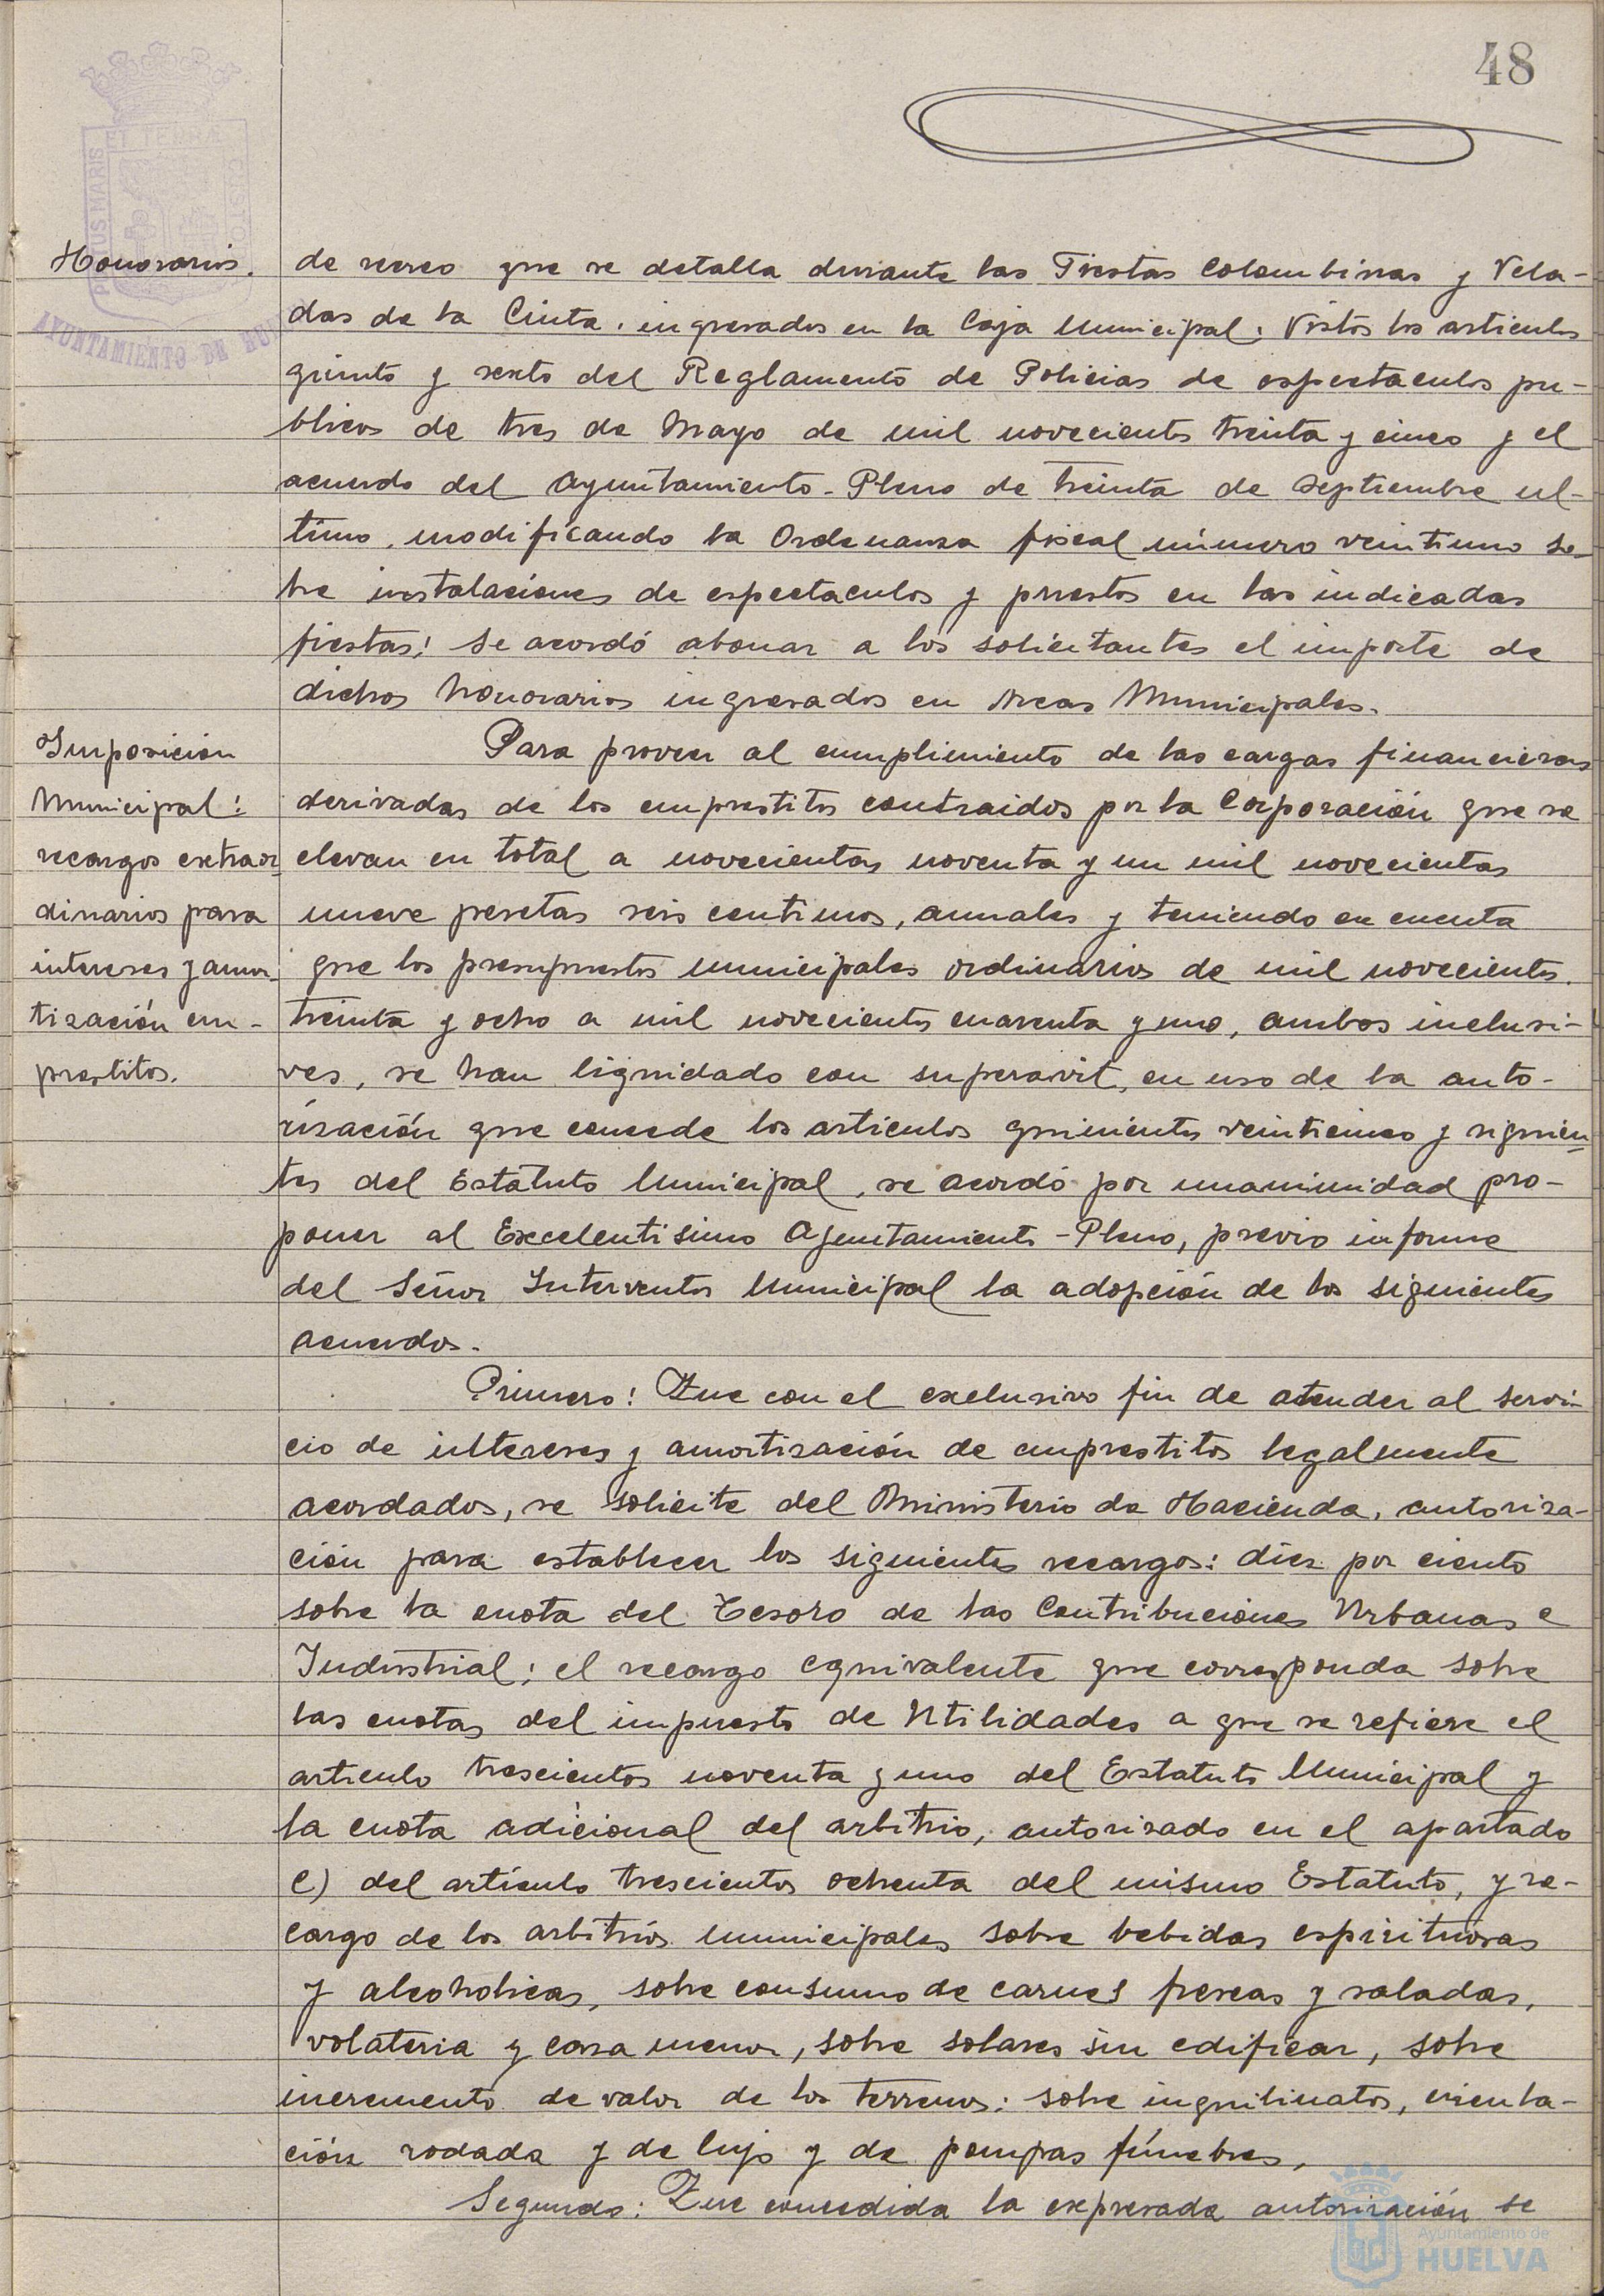 48
PORTUS MARIS ET TERRAE CUSTODIA
AYUNTAMIENTO DE HUELVA
Honorarios.
de recreo que se detalla durante las Fiestas Colombinas y Vela-
das de la Cinta, ingresados en la Caja Municipal: Vistos los articulos
quinto y sexto del Reglamento de Policias de espectaculos pu-
blicos de tres de Mayo de mil novecientos treinta y cinco y el
acuerdo del Ayuntamiento-Pleno de treinta de Septiembre ul-
timo, modificando la Ordenanza fiscal número veintiuno so-
bre instalaciones de espectaculos y puestos en las indicadas
fiestas: Se acordó abonar a los solicitantes el importe de
dichos honorarios ingresados en Arcas Municipales.
Imposicion
Municipal:
recargos extraor
dinarios para
intereses y amor-
tización em-
prestitos.
Para proveer al cumplimiento de las cargas financieras
derivadas de los emprestitos contraidos por la Corporación que se
elevan en total a novecientas noventa y un mil novecientas
nueve pesetas seis centimos, anuales y teniendo en cuenta
que los presupuestos municipales ordinarios de mil novecientos
treinta y ocho a mil novecientos cuarenta y uno, ambos inclusi-
ves, se han liquidado con superavit, en uso de la auto-
rización que concede los articulos quinientos veinticinco y siguien-
tes del Estatuto Municipal, se acordó por unanimidad pro-
poner al Excelentisimo Ayuntamiento-Pleno, previo informe
del Señor Interventor Municipal la adopción de los siguientes
acuerdos.
Primero: Que con el exclusivo fin de atender al servi-
cio de intereses y amortización de emprestitos legalmente
acordados, se solicite del Ministerio de Hacienda, autoriza-
ción para establecer los siguientes recargos: diez por ciento
sobre la cuota del Tesoro de las Contribuciones Urbanas e
Industrial; el recargo equivalente que corresponda sobre
las cuotas del impuesto de Utilidades a que se refiere el
articulo trescientos noventa y uno del Estatuto Municipal y
la cuota adicional del arbitrio, autorizado en el apartado
C) del artículo trescientos ochenta del mismo Estatuto, y re-
cargo de los arbitrios municipales sobre bebidas espirituosas
y alcoholicas, sobre consumo de carnes frescas y saladas,
volateria y caza menor, sobre solares sin edificar, sobre
incremento de valor de los terrenos: sobre inquilinatos, circula-
ción rodada y de lujo y de pompas fúnebres,
Segundo: Que concedida la expresada autorización se
Ayuntamiento de
HUELVA